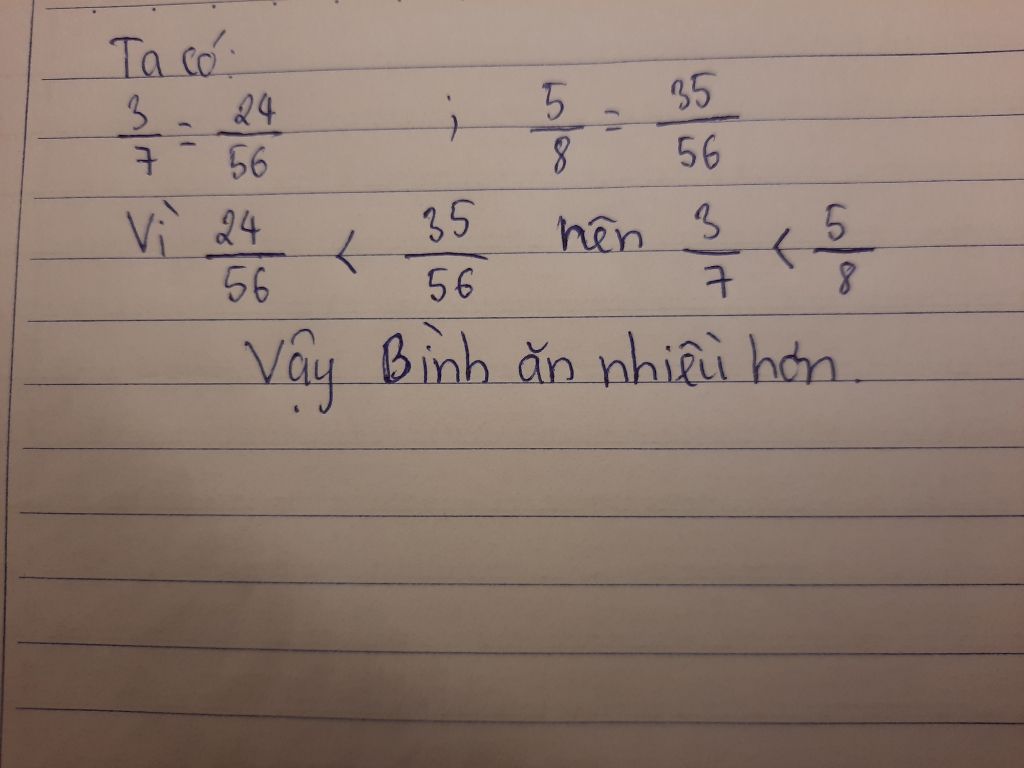 Ta có:
3/7 = 24/56 ; 5/8 = 35/56
Vì 24/56 < 35/56 nên 3/7 < 5/8
Vậy Bình ăn nhiều hơn.